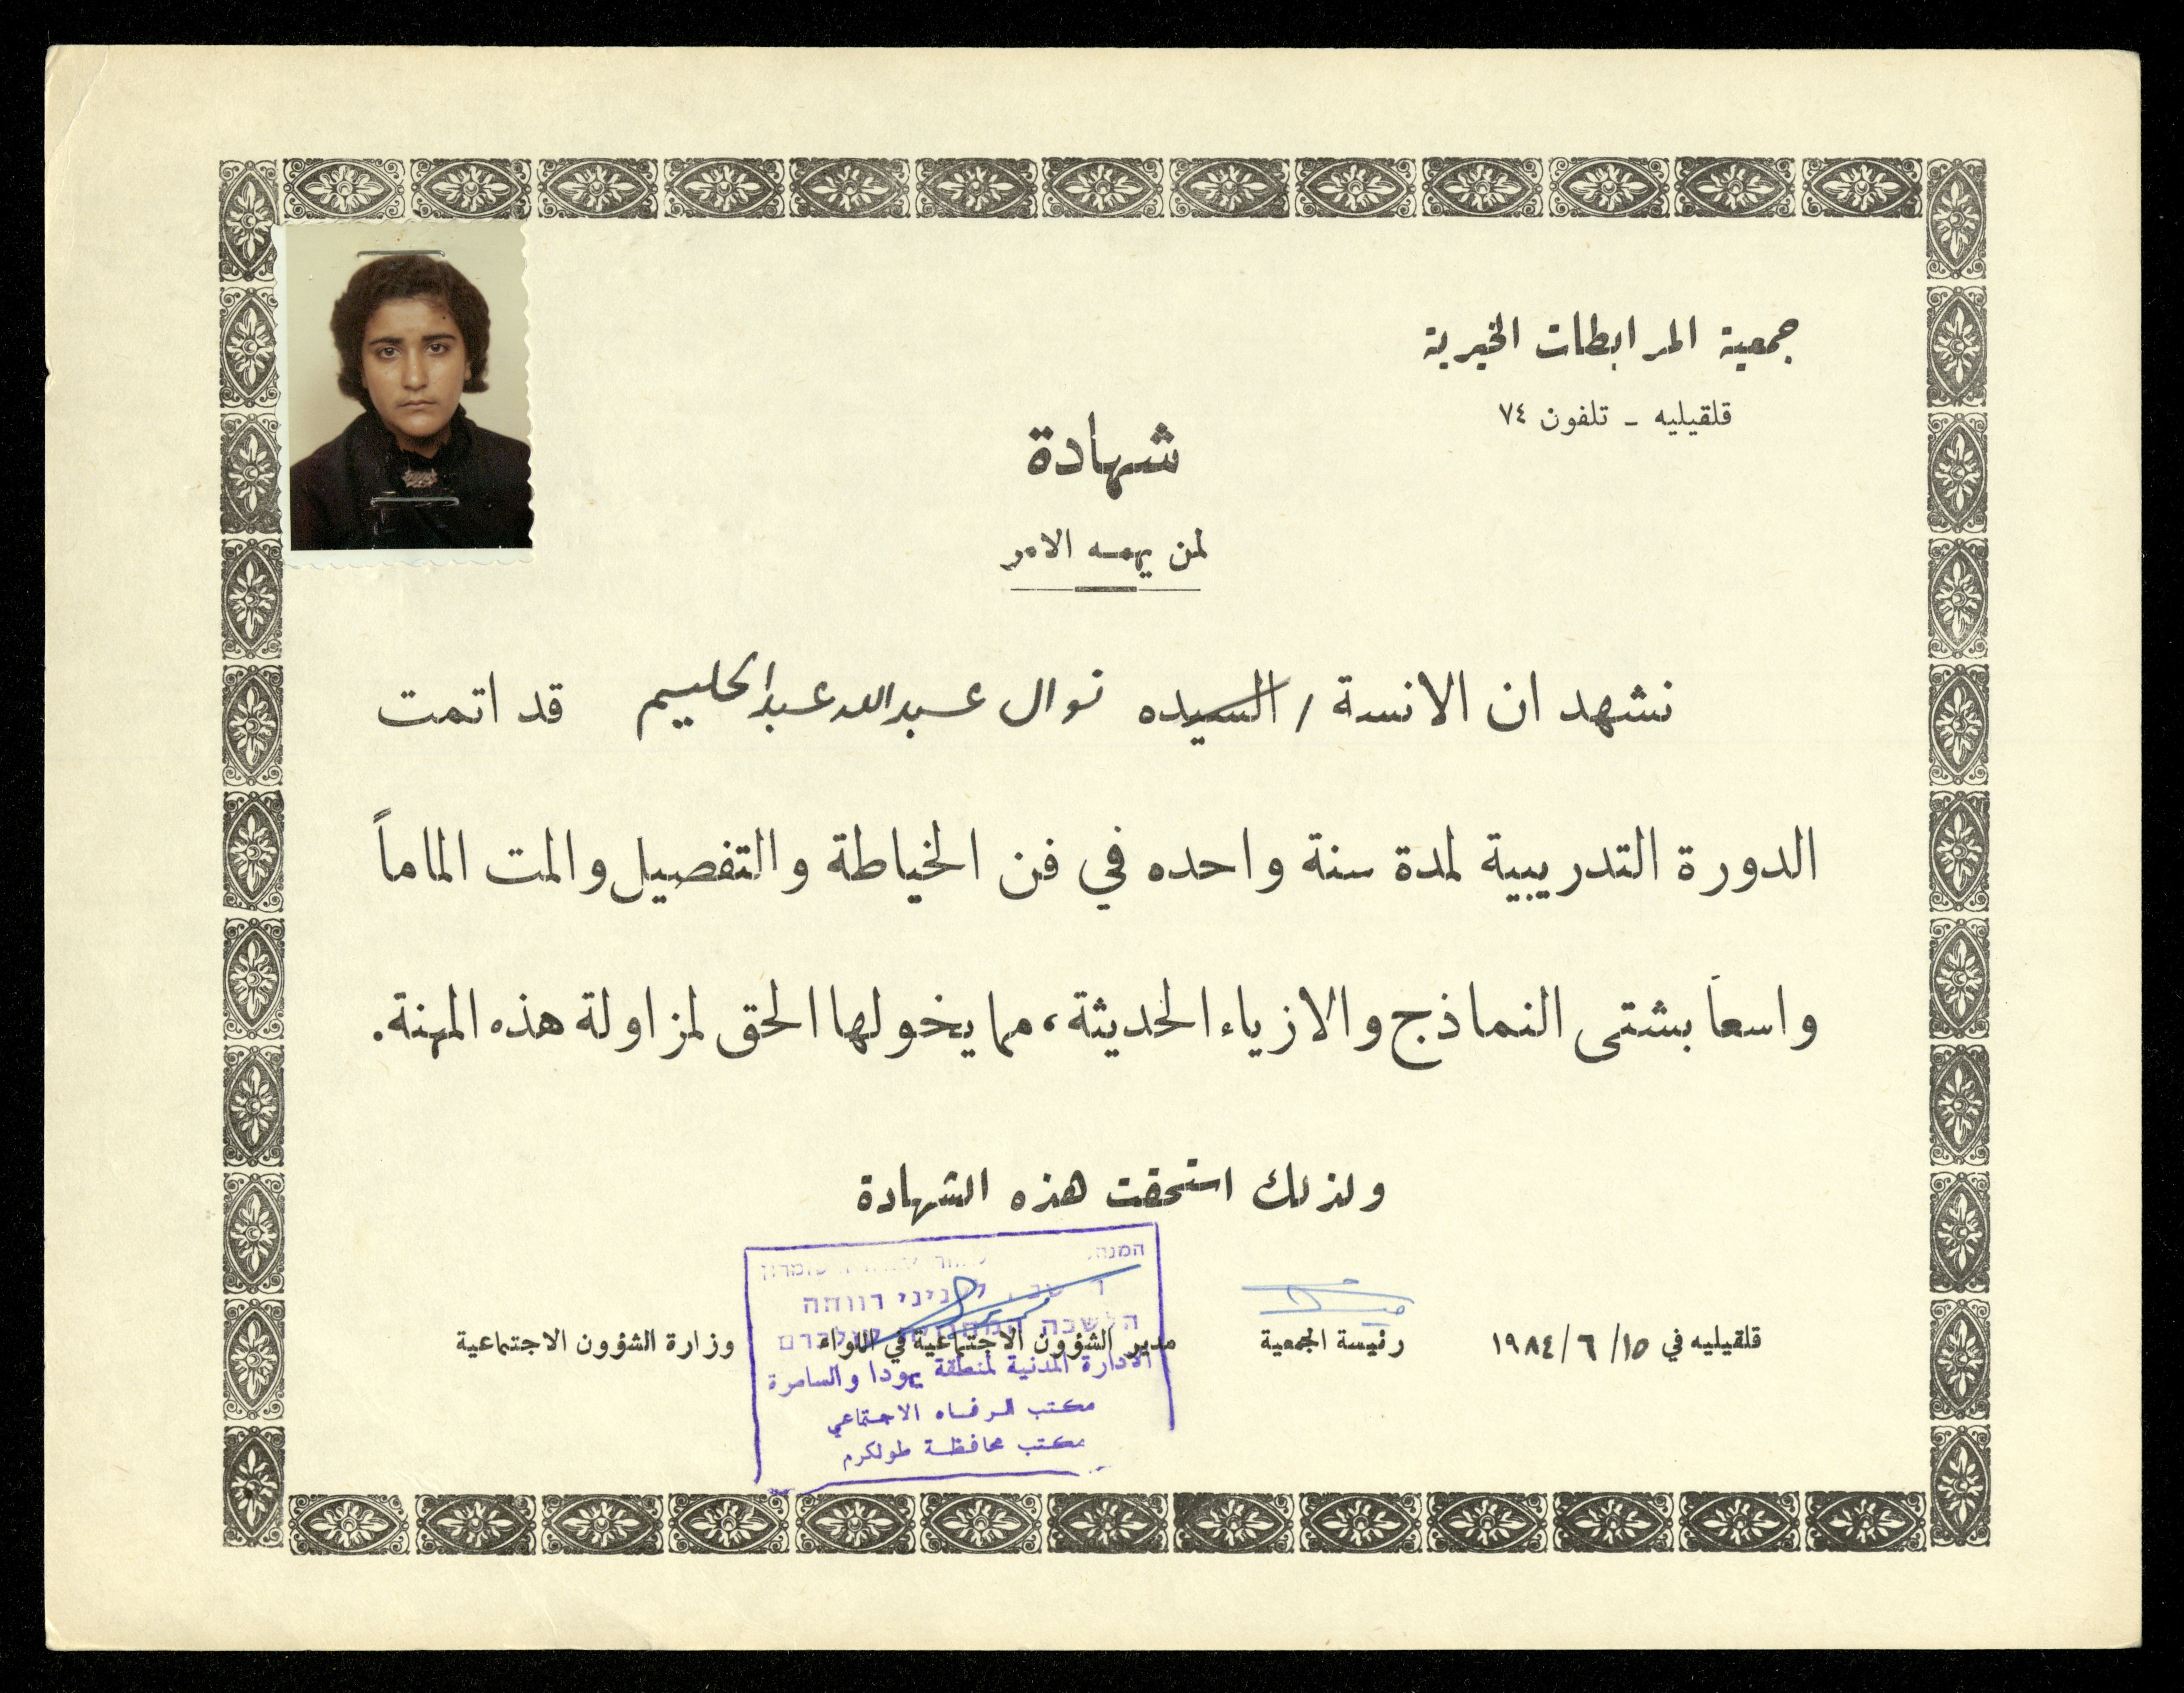 جمعية المرابطات الخيرية
قلقيليه ـ تلفون ٧٤
شهادة
لمن يهمه الامر
نشهد ان الانسة / السيده نوال عبدالله عبدالحليم قد اتمت
الدورة التدريبية لمدة سنة واحده في فن الخياطة والتفصيل والمت الماماً
واسعاً بشتى النماذج والازياء الحديثة، مما يخولها الحق لمزاولة هذه المهنة.
ولذلك استحقت هذه الشهادة
קניני רווחה
הלשכה
قلقيليه في ١٥/ ٦ /١٩٨٤ رئيسة الجمعية مدير الشؤون الاجتماعية في اللواء وزارة الشؤون الاجتماعية
الادارة المدنية لمنطقة يهودا والسامرة
مكتب الرفاه الاجتماعي
مكتب محافظة طولكرم